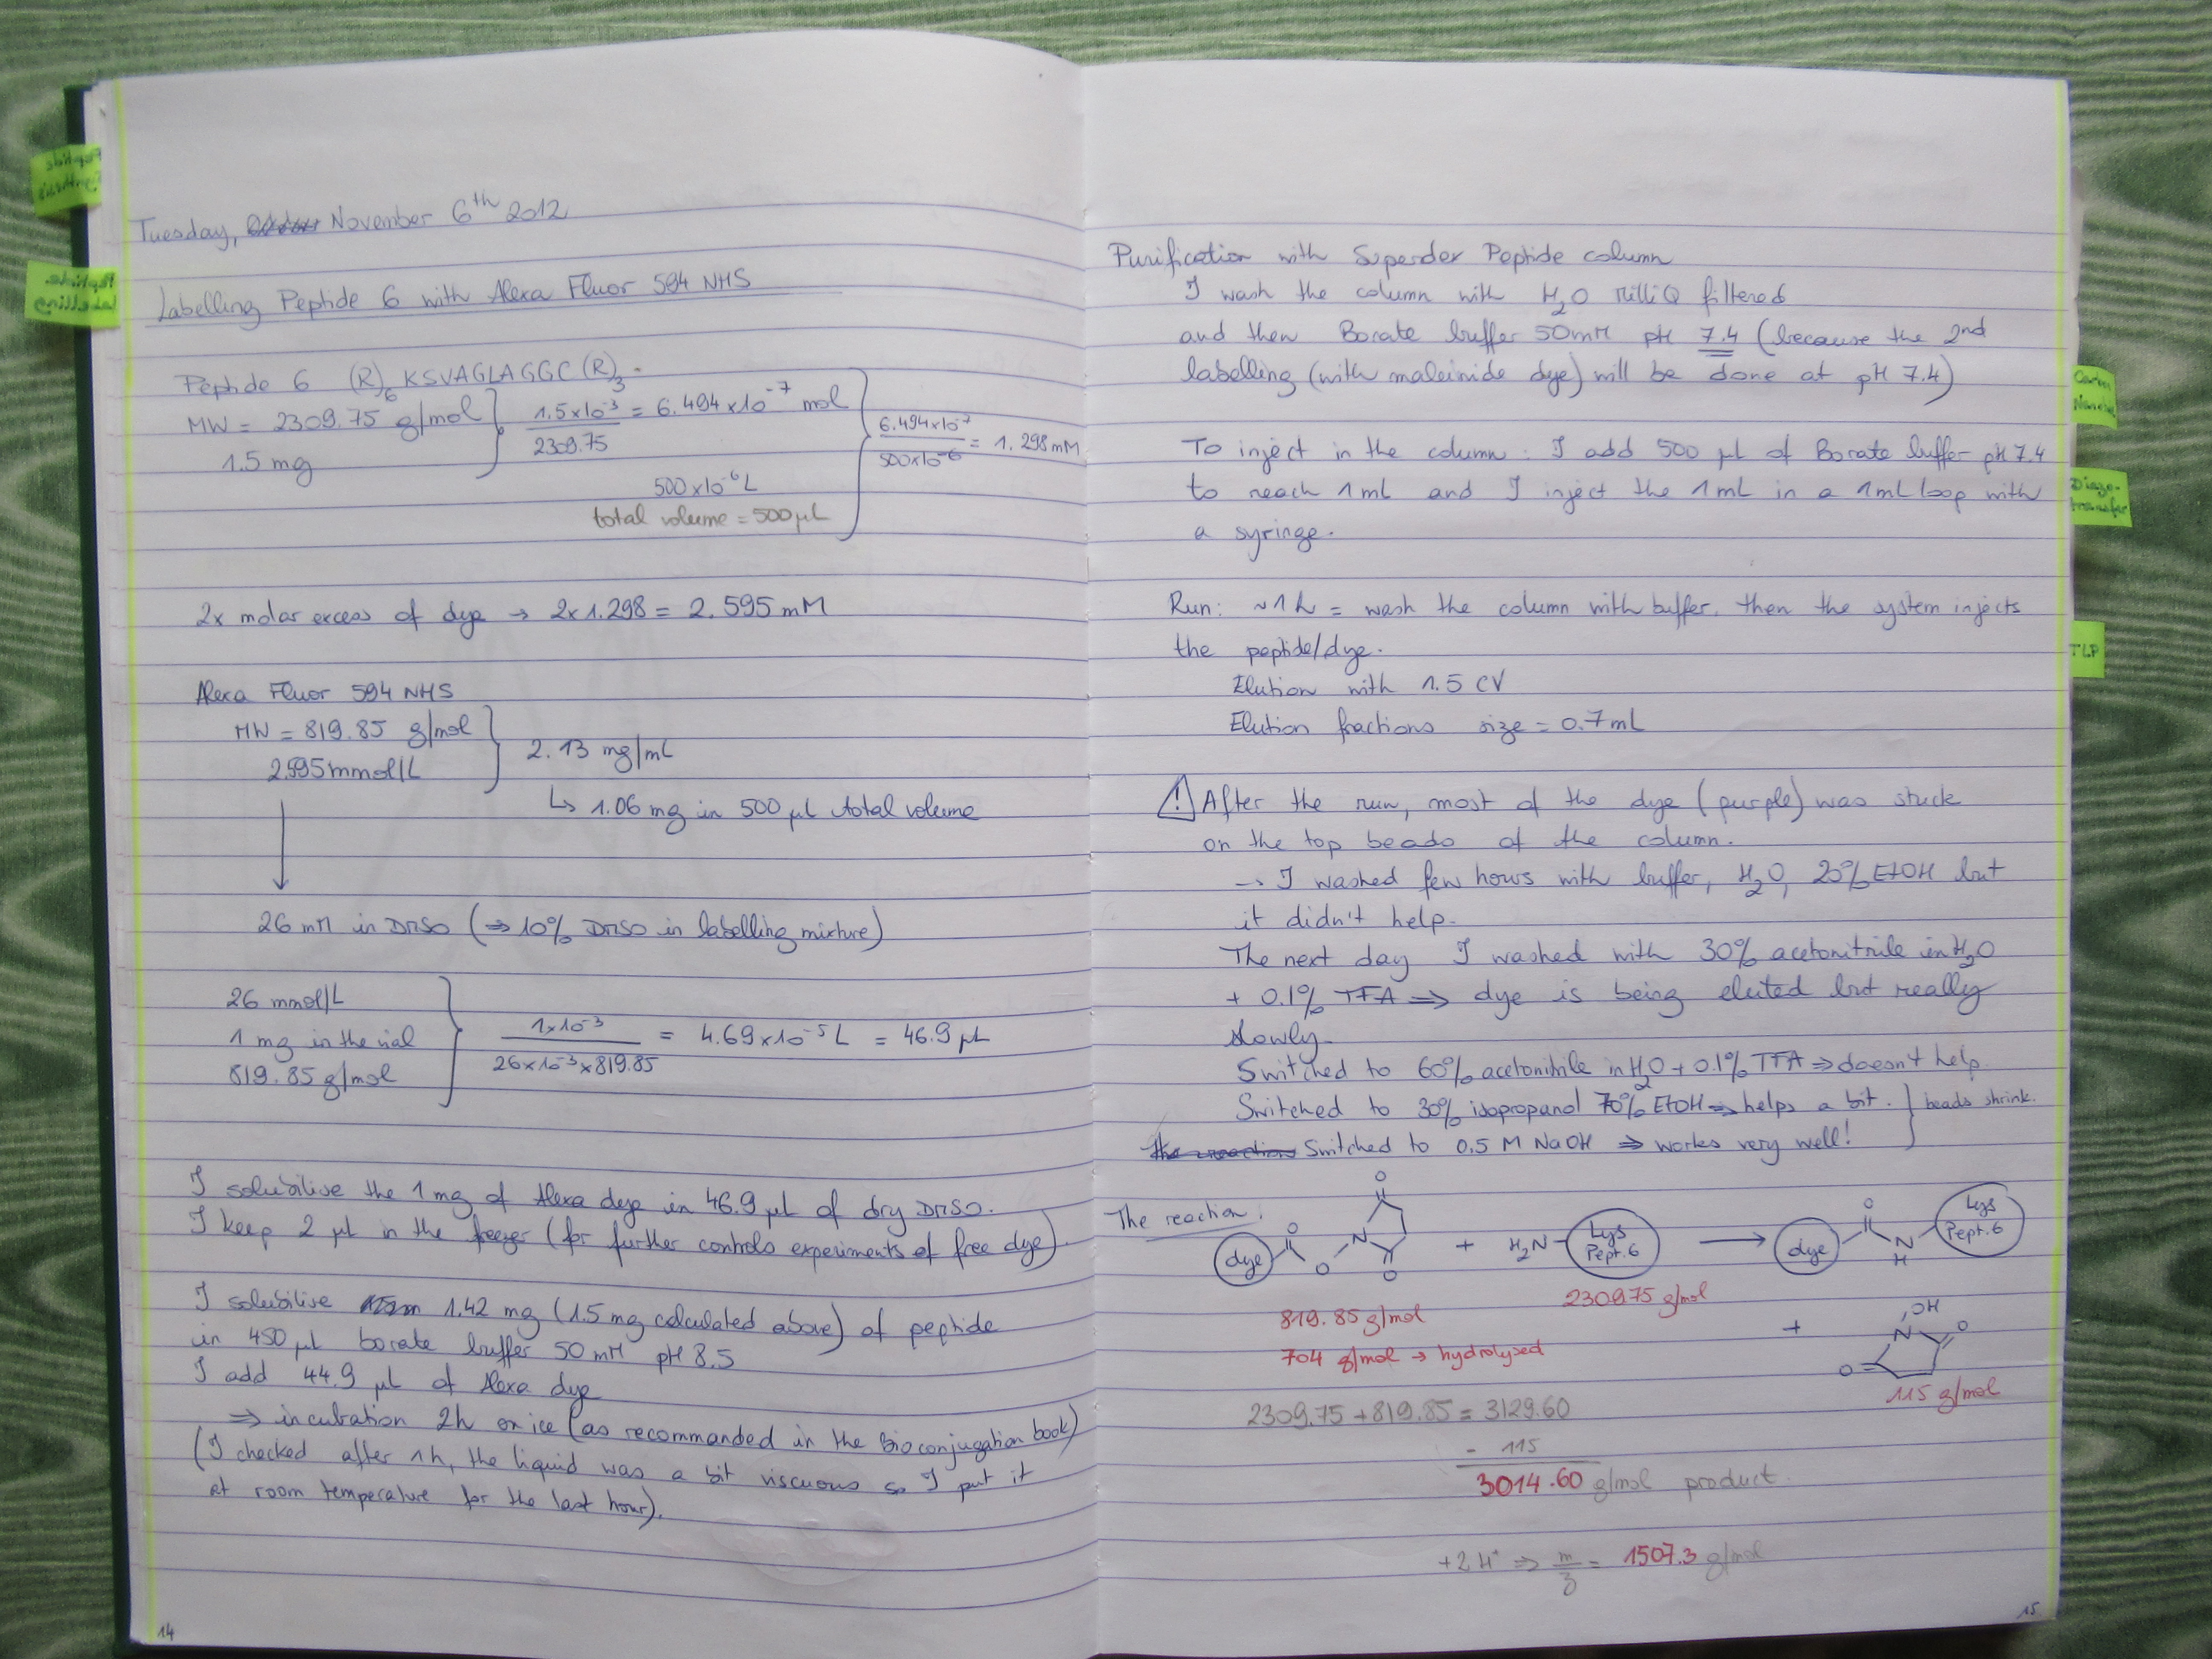 Tuesday, November 6th 2012
Labelling Peptide 6 with Alexa Fluor 594 NHS
Peptide 6 (R)6 KSVAGLAGGC (R)3.
MW = 2309.75 g/mol
1.5 mg
1.5x10-3 / 2309.75 = 6.494x10-7 mol
500x10-6 L
total volume = 500 µL
6.494x10-7 / 500x10-6 = 1.298 mM
2x molar excess of dye → 2x1.298 = 2.595 mM
Alexa Fluor 594 NHS
MW = 819.85 g/mol
2.595 mmol/L
2.13 mg/mL
↳ 1.06 mg in 500 µL total volume
26 mM in DMSO (⇒ 10% DMSO in labelling mixture)
26 mmol/L
1 mg in the vial
819.85 g/mol
1x10-3 / 26x10-3x819.85 = 4.69x10-5 L = 46.9 µL
I solubilise the 1 mg of Alexa dye in 46.9 µL of dry DMSO.
I keep 2 µL in the freezer (for further controls experiments of free dye).
I solubilise 1.42 mg (1.5 mg calculated above) of peptide
in 450 µL borate buffer 50 mM pH 8.5
I add 44.9 µL of Alexa dye
⇒ incubation 2h on ice (as recommanded in the Bioconjugation book)
(I checked after 1h, the liquid was a bit viscuous so I put it
at room temperature for the last hour).
14
Purification with Superdex Peptide column
I wash the column with H2O MilliQ filtered
and then Borate buffer 50mM pH 7.4 (because the 2nd
labelling (with maleimide dye) will be done at pH 7.4)
To inject in the column: I add 500 µL of Borate buffer pH 7.4
to reach 1 mL and I inject the 1 mL in a 1 mL loop with
a syringe.
Run: ~1h = wash the column with buffer, then the system injects
the peptide/dye.
Elution with 1.5 CV
Elution fractions size = 0.7 mL
! After the run, most of the dye (purple) was stuck
on the top beads of the column.
→ I washed few hours with buffer, H2O, 20% EtOH but
it didn't help.
The next day I washed with 30% acetonitrile in H2O
+ 0.1% TFA ⇒ dye is being eluted but really
slowly.
Switched to 60% acetonitrile in H2O + 0.1% TFA ⇒ doesn't help.
Switched to 30% isopropanol 70% EtOH ⇒ helps a bit. } beads shrink.
The reaction Switched to 0.5 M NaOH ⇒ works very well!
The reaction:
dye O O N O O + H2N Lys Pept.6 → dye O N H Lys Pept.6
819.85 g/mol
2309.75 g/mol
704 g/mol → hydrolysed
+ OH N O O
115 g/mol
2309.75 + 819.85 = 3129.60
- 115
3014.60 g/mol product.
+2H+ ⇒ m/z = 1507.3 g/mol
15
Diazo-transfer
TLP
Peptide Labelling
Peptide Synthesis